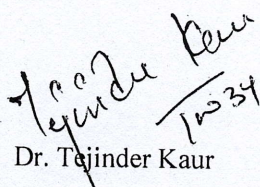 Tejinder Kaur
Dr. Tejinder Kaur